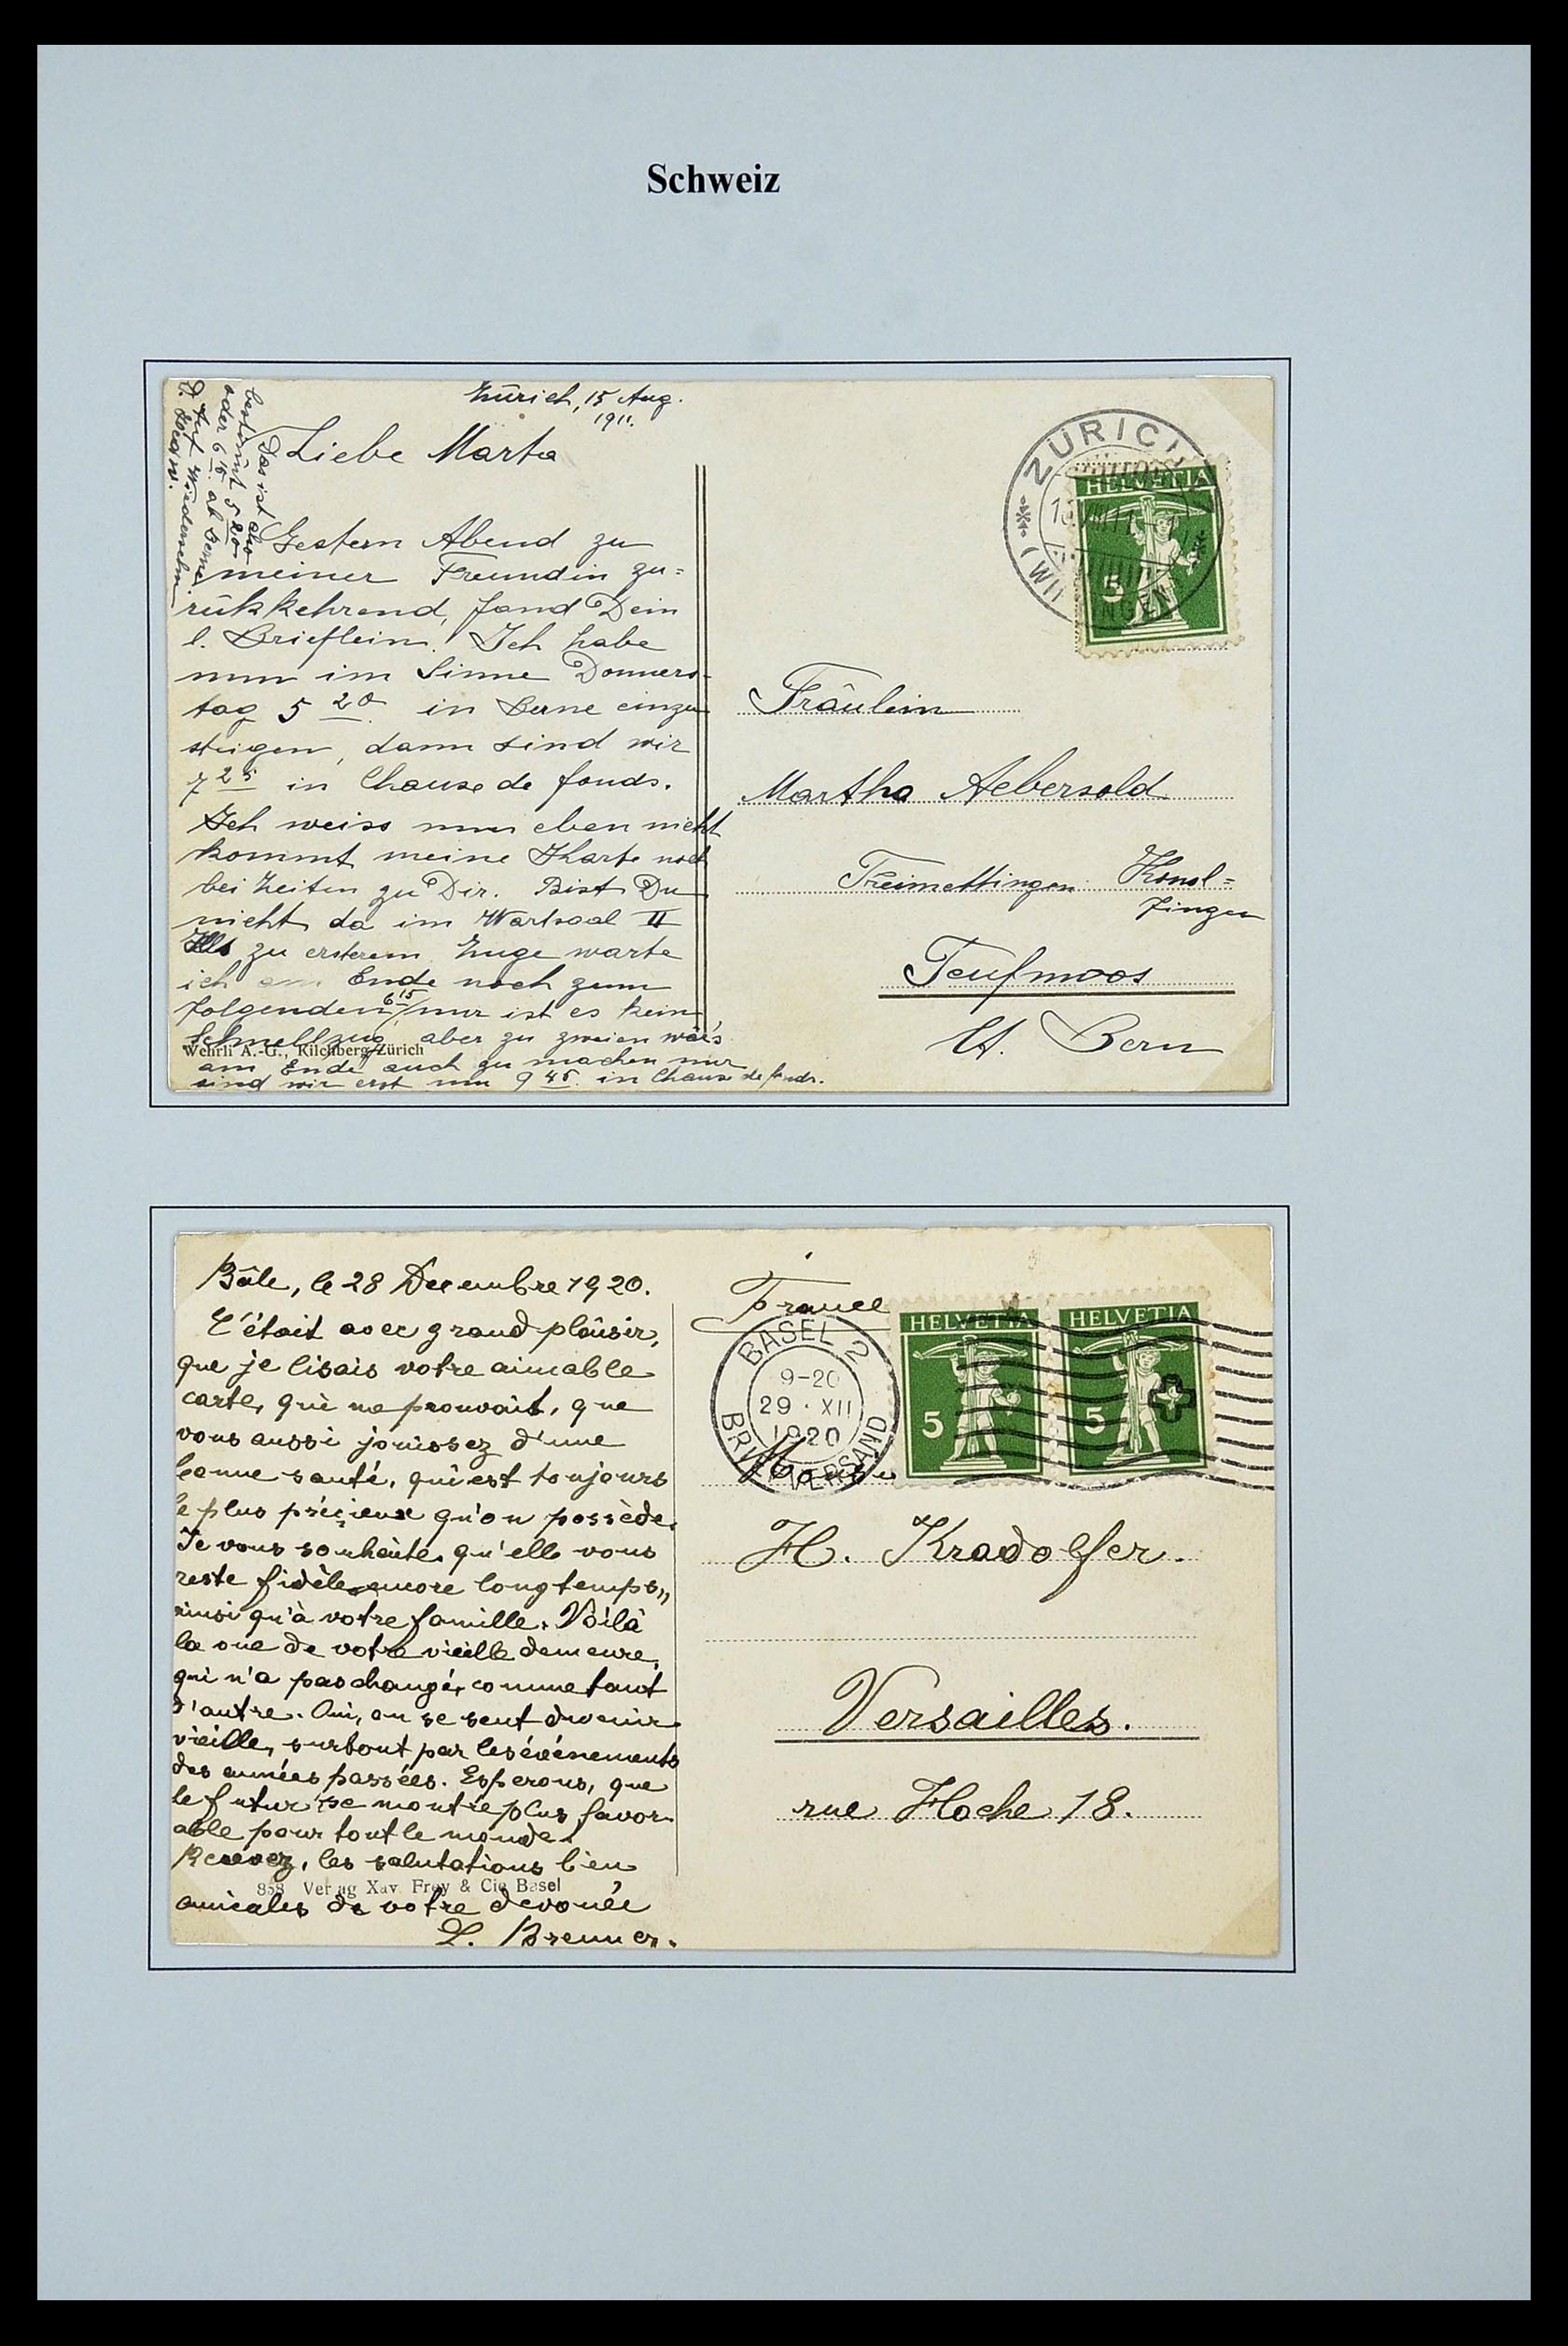 Schweiz
Zürich, 15 Aug.
1911.
Liebe Marta
Gestern Abend zu
meiner Freundin zu=
rükkehrend, fand Dein
l. Brieflein. Ich habe
nun im Sinne Donners-
tag 5 20 in Berne einzu
steigen, dann sind wir
7 25 in Chaux de fonds.
Ich weiss nun eben nicht
kommt meine Karte noch
bei Zeiten zu Dir. Bist Du
nicht da im Wartsaal II
zu ersterem Zuge warte
ich am Ende noch zum
folgenden 6 15 / nur ist es kein
Schnellzug, aber zu zweien wär's
am Ende auch zu machen nur
sind wir erst um 9 45 in Chaux de fonds.
Das ist also
bestimmt 5 20
oder 6 15 ab Berne
Auf Wiedersehn
Wehrli A.-G., Kilchberg/Zürich
ZÜRICH
HELVETIA
5
Fräulein
Martha Aebersold
Freimettingen Konol=
fingen
Teufmoos
Ct. Bern
Bâle, le 28 Decembre 1920.
C'était avec grand plaisir,
que je lisais votre aimable
carte, qui me prouvait, que
vous aussi jouissez d'une
bonne santé, qui est toujours
le plus précieux qu'on possède.
Je vous souhaite, qu'elle vous
reste fidèle encore longtemps,
ainsi qu'à votre famille. Voilà
la vue de votre vieille demeure,
qui n'a pas changé, comme tant
d'autre. Oui, on se sent devenir
vieille, surtout par les événements
des années passées. Esperons, que
le futur se montre plus favor-
able pour tout le monde.
Recevez, les salutations bien
amicales de votre devouée
L. Brenner.
858 Verlag Xav. Frey & Cie Basel
France
BASEL 2
9-20
29·XII
1920
BRIEFVERSAND
HELVETIA
5
HELVETIA
5
H. Kradolfer.
Versailles.
rue Hoche 18.